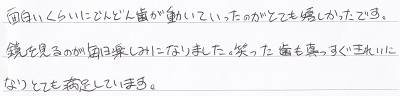 面白いくらいにどんどん歯が動いていったのがとても嬉しかったです。
鏡を見るのが毎日楽しみになりました。笑った歯も真っすぐきれいに
なりとても満足しています。